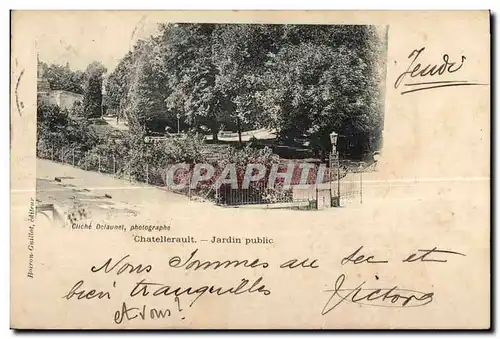 Jeudi
CARTHAPHILIE
Cliché Delaunet, photographe
Chatellerault. — Jardin public
Boiron-Guillot, éditeur
Nous sommes au sec et
bien tranquilles
et vous?
Victor